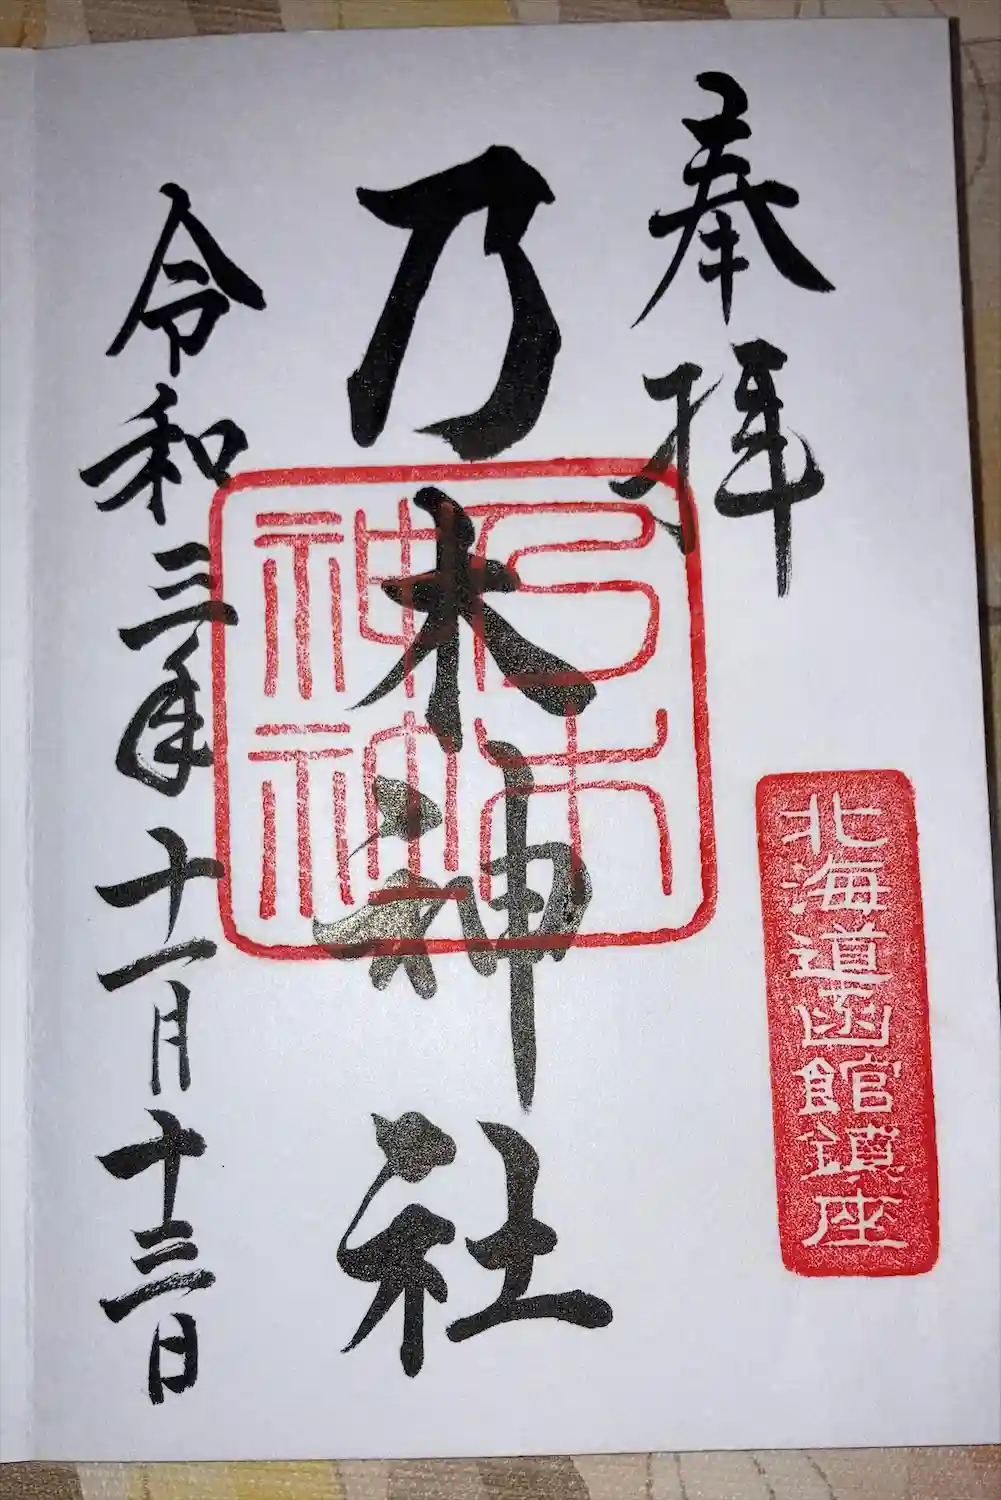 奉拝
北海道函館鎮座
乃木神社
乃木
神
令和三年十一月十三日